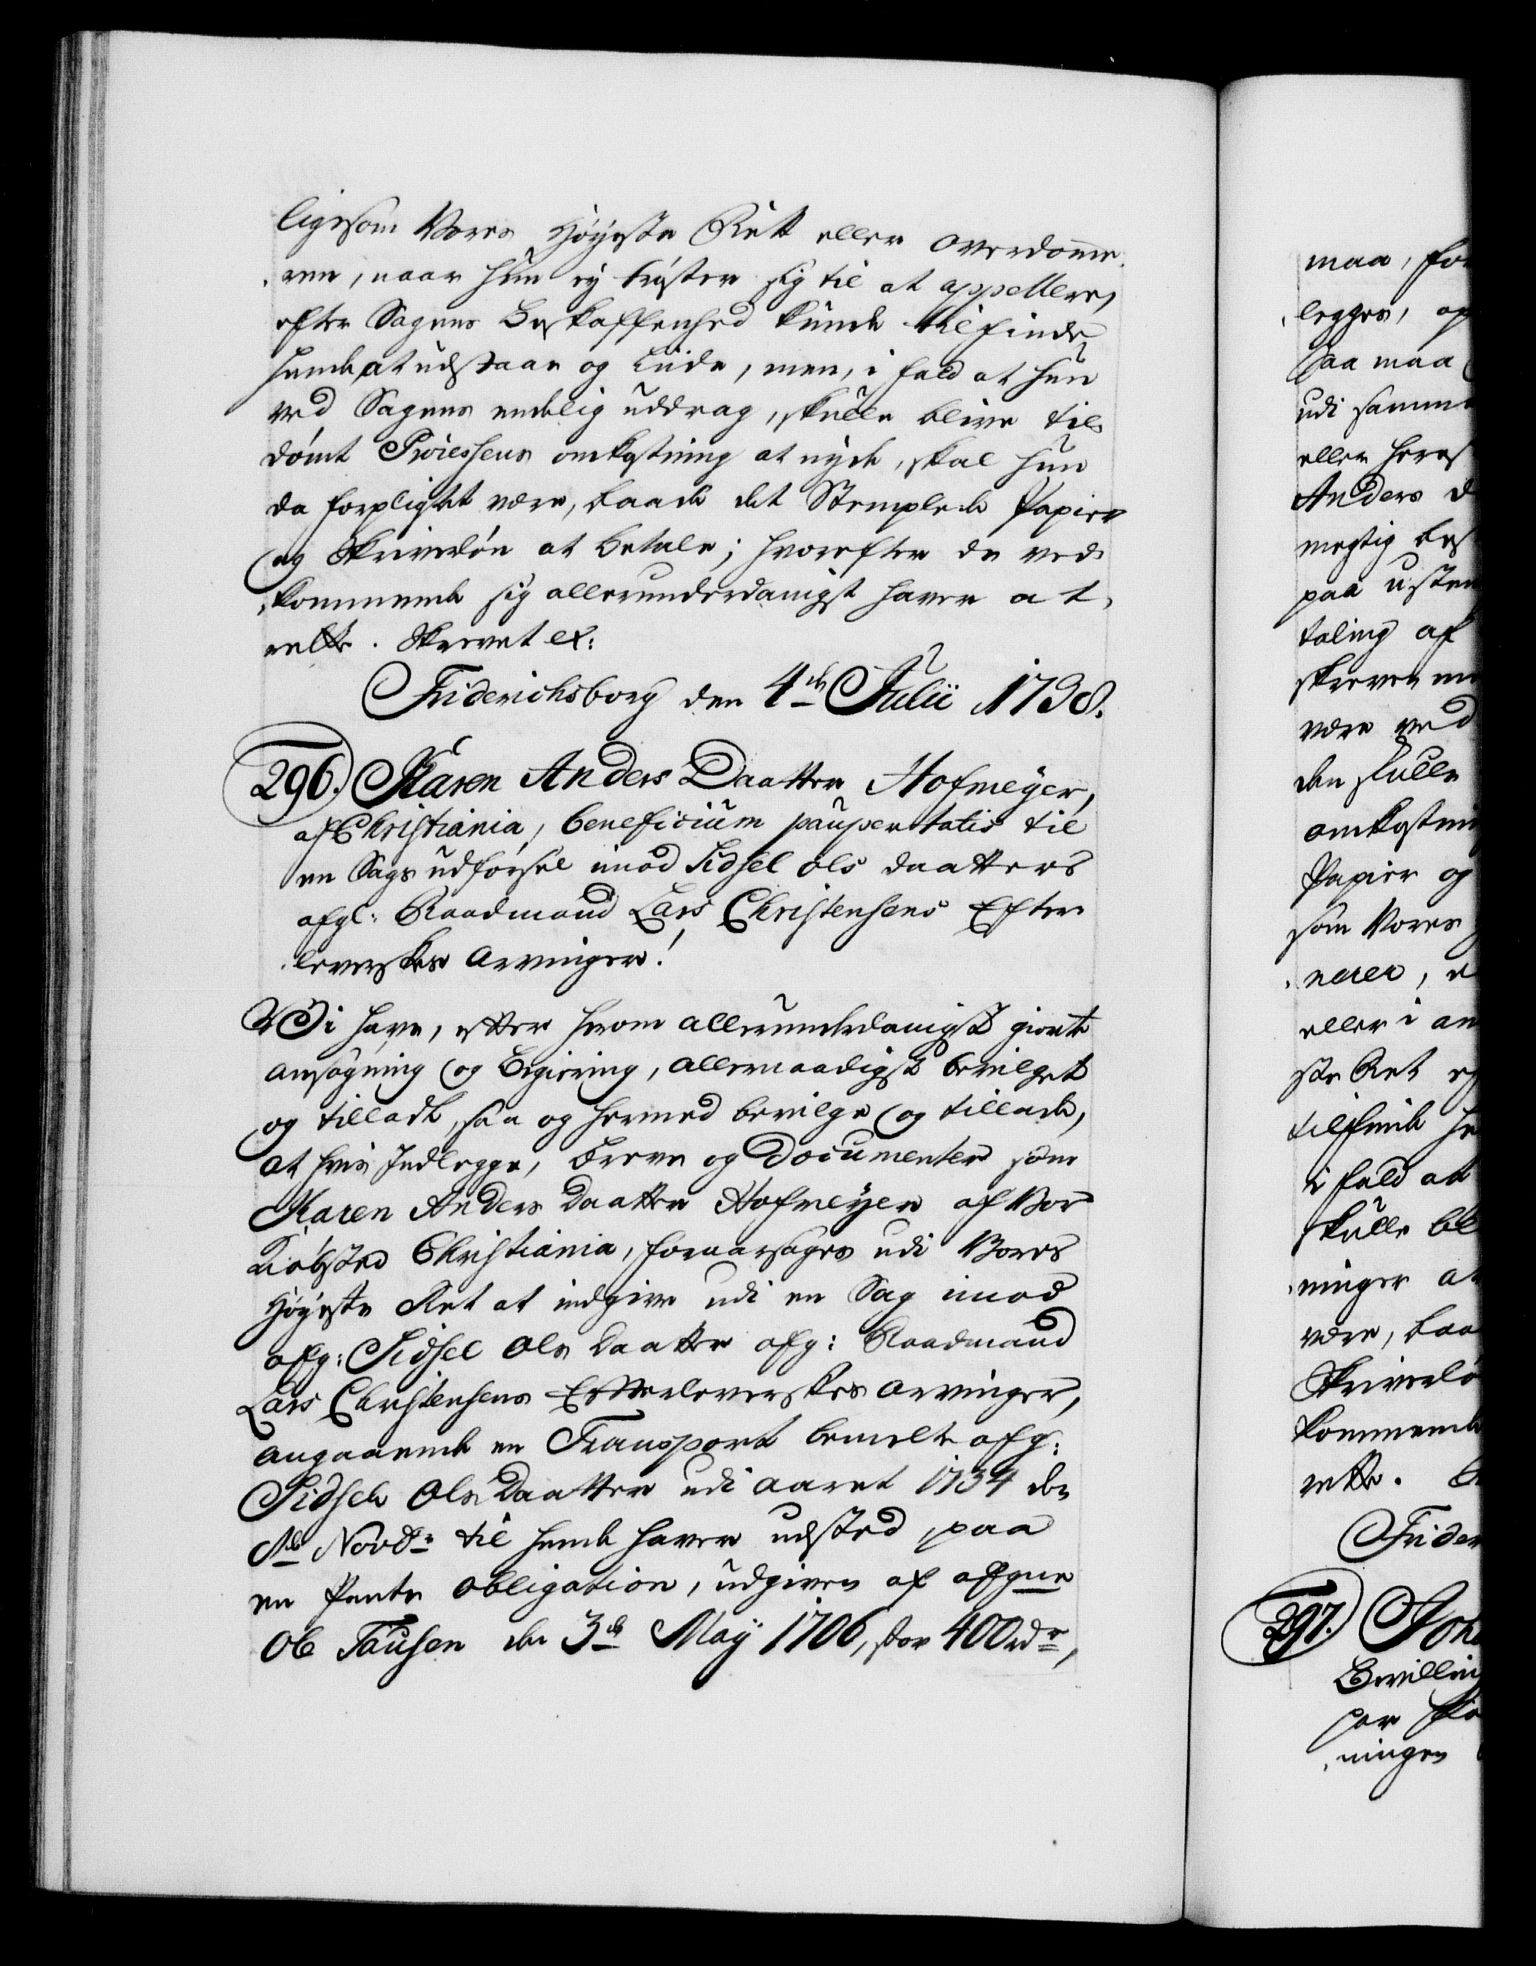 ligesom Vores Høyeste Rett eller overdomme-
ren, naar hun ey trøster sig til at appellere,
efter Sagens Beskaffenhed kunde tilfinde
hende at udstaae og liide, men, i fald at hun
ved Sagens endelig uddrag, skulle blive til-
dømt Processens omkostning at nyde, skal hun
da forpligtet være, baade det Stemplede Papier
og Skriverløn at betale; hvorefter de ved-
kommende sig allerunderdanigst haver at
rette. Skrevet etc:
Friderichsborg den 4de Julii 1738.
296. Karen Anders Daatter Hofmeyer,
af Christiania, beneficium paupertatis til
en Sags udførsel imod Sidsel Ols daatters
afgl: Raadmand Lars Christensens Efter-
leverskes Arvinger!
Vi have, efter herom allerunderdanigst giorte
ansøgning og Begiering, allernaadigst bevilget
og tilladt, saa og hermed bevilge og tillade,
at hvis Indlegge, Breve og Documenter som
Karen Anders Daatter Hofmeyer af Vor
Kiøbsted Christiania, foraarsages udi Vores
Høyeste Ret at indgive udi en Sag imod
afg: Sidsel Ols Daatter afg: Raadmand
Lars Christensens Efterleverskes Arvinger,
angaaende en Transport bemelte afg:
Sidsel Ols Daatter udi aaret 1734 den
Novbr: til hende haver udsted paa
en Pante Obligation, udgiven af afgne
Ole Tausen den 3de Maÿ 1706, stor 400 rdr,
maa, for
legges, op
saa maa
udi samme
eller heres
Anders D
megtig bes
paa ustem
taling af
skreven me
være ved
den skulle
omkostni
Papier og
som Vores
nerer, e
eller i an
ste Ret ef
tilfinde he
i fald at
skulle bl
ninger at
være, baa
Skriverlø
kommende
rette. S
Frider
297. Joh
Bevilling
par
ningen